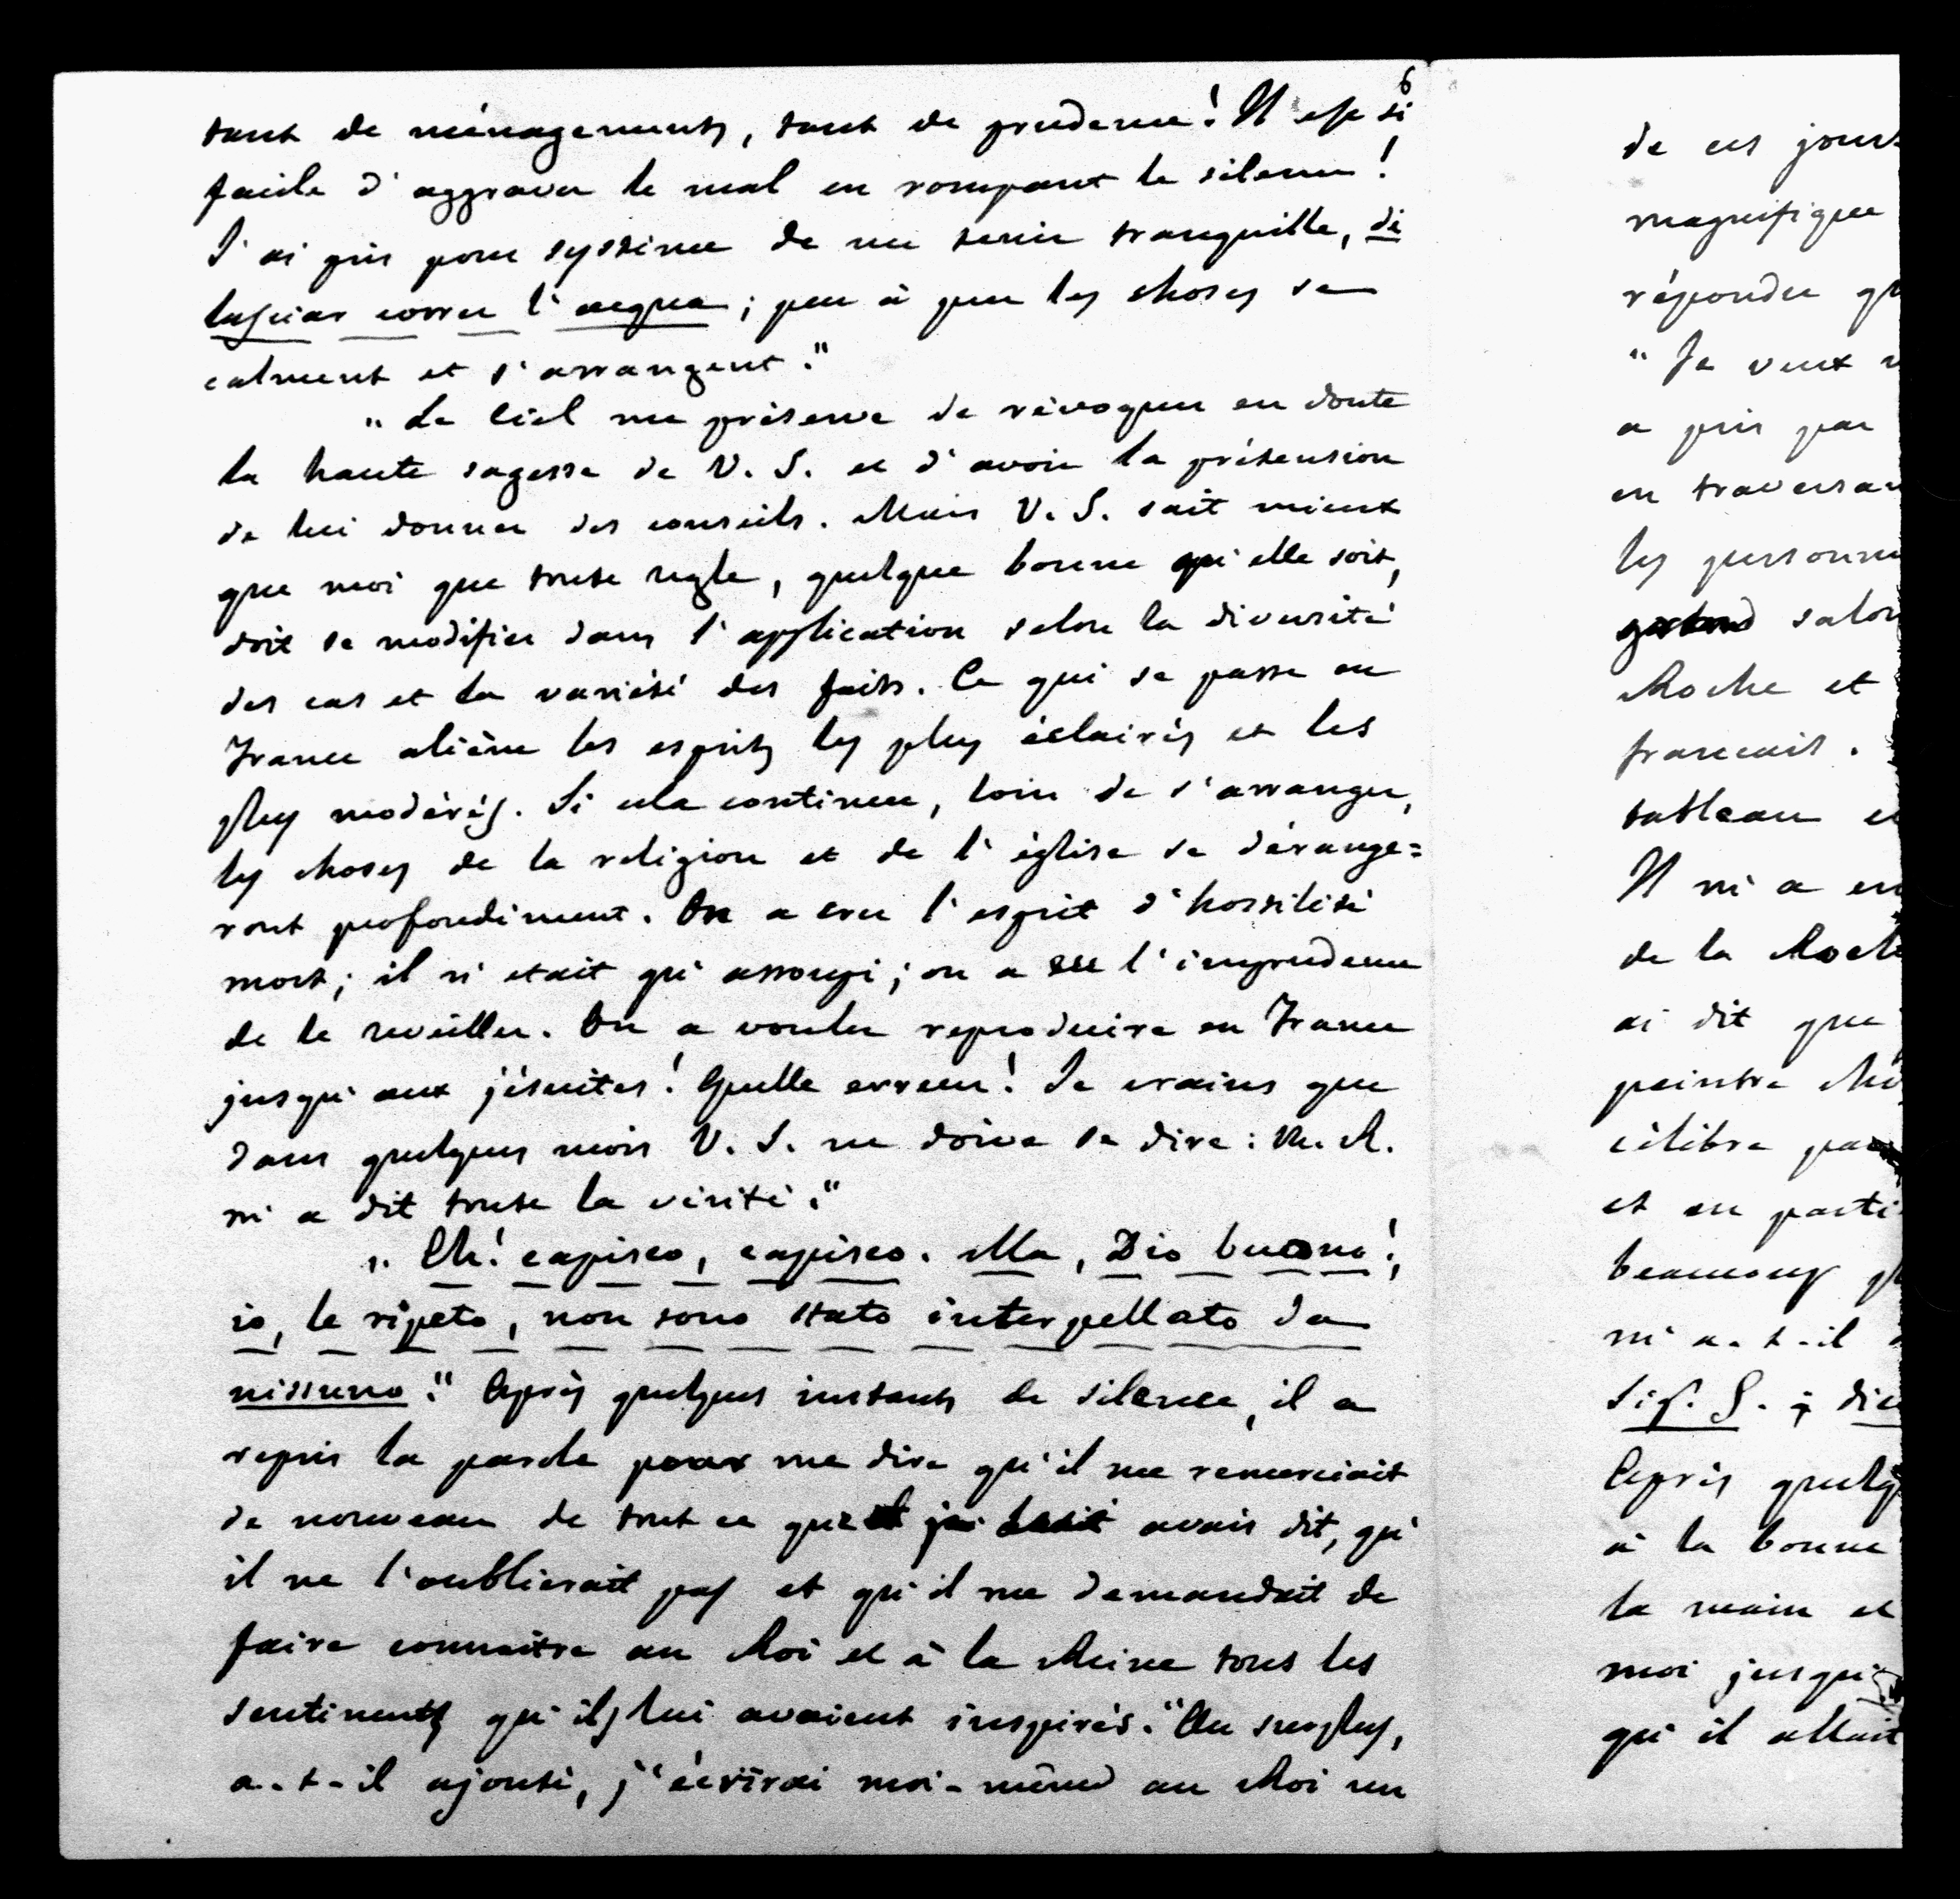 6
tant de ménagements, tant de prudence! Il est si
facile d'aggraver le mal en rompant le silence!
J'ai pris pour système de me tenir tranquille, di
lasciar correr l'acqua; peu à peu les choses se
calment et s'arrangent."
"Le Ciel me préserve de révoquer en doute
la haute sagesse de V. S. et d'avoir la prétension
de lui donner des conseils. Mais V. S. sait mieux
que moi que toute regle, quelque bonne qu'elle soit,
doit se modifier dans l'application selon la diversité
des cas et la variété des faits. Ce qui se passe en
France aliène les esprits les plus éclairés et les
plus modérés. Si cela continue, loin de s'arranger,
les choses de la religion et de l'église se dérange=
ront profondément. On a cru l'esprit d'hostilité
mort; il n'etait qu'assoupi; on a eu l'imprudence
de le reveiller. On a voulu reproduire en France
jusqu'aux jésuites! Quelle erreur! Je crains que
dans quelques mois V. S. ne doive se dire: M. R.
m'a dit toute la vérité."
"Eh! capisco, capisco. Ma, Dio buono!,
io, le ripeto, non sono stato interpellato da
nissuno." Après quelques instants de silence, il a
repris la parole pour me dire qu'il me remerciait
de nouveau de tout ce que avais dit, qu'
il ne l'oublierait pas et qu'il me demandait de
faire connaitre au Roi et à la Reine tous les
sentiments qu'ils lui avaient inspirés. "Au surplus,
a-t-il ajouté, j'écrirai moi-même au Roi un
de ces jours
magnifique
répondre
"Je veux
a pris par
en
les
salon
Roche et
francais.
tableau
Il m'a
de la
ai dit que
peintre
célèbre
et en
beaucoup
m'a-t-il
Sig. G.
Après
à la bonne
la main et
moi
qu'il allait